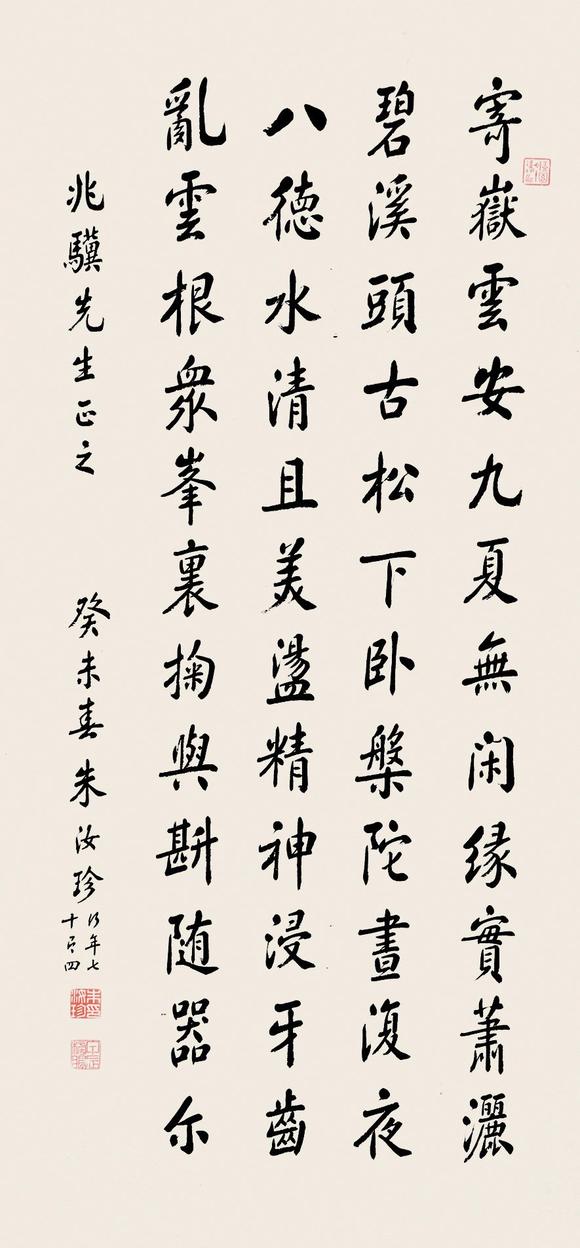 寄嶽雲安九夏無闲缘實蕭灑
碧溪頭古松下卧槃陀晝復夜
八德水清且美盪精神浸牙齒
亂雲根衆峯裏掬與斟随器尔
兆驥先生正之
癸未春朱汝珍
行年七
十有四
朱汝珍